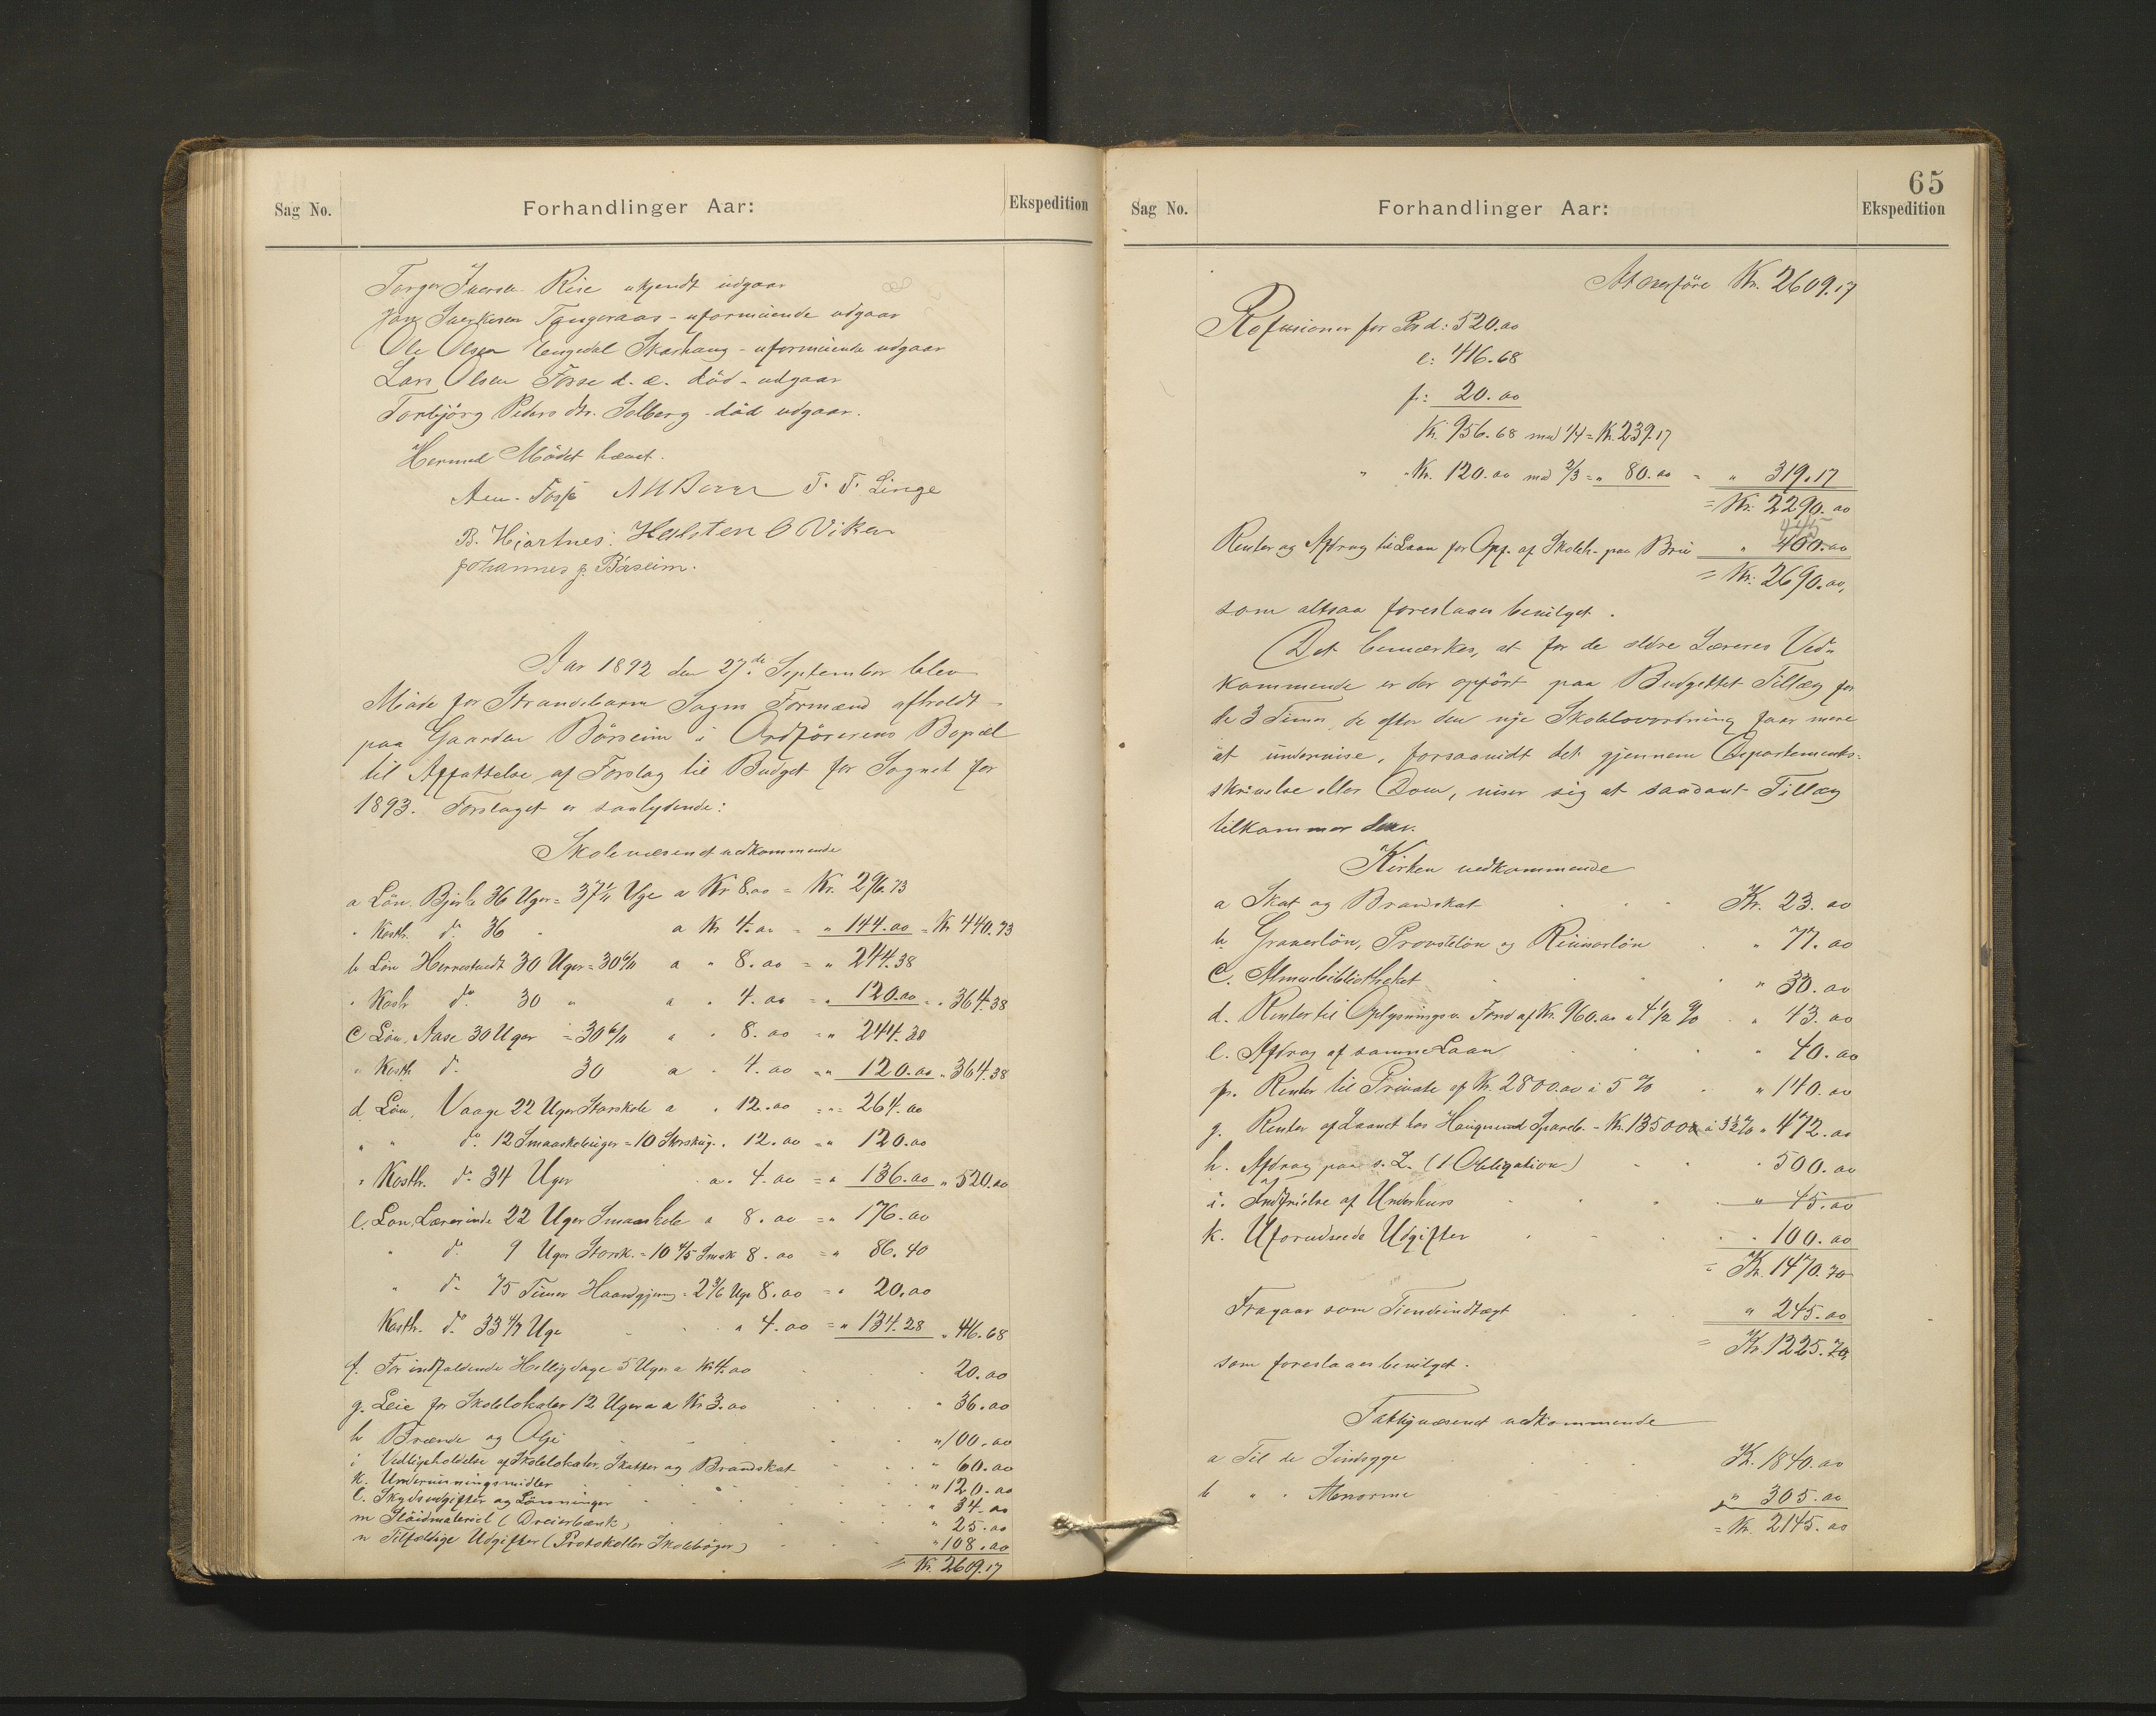 Sag No. Forhandlinger Aar: Ekspedition
Torger Iversen Rise ukjendt udgaar
Tangeraas - uformuende udgaar
Ole Olsen Engedal Skarhaug - uformuende udgaar
Lars Olsen Fosse d. æ. död - udgaar
Torbjörg Peders dtr. Solberg - död udgaar.
Hermed Mödet hævet.
T. T. Linge
B. Hjartnes. Halsten O Viken
Johannes J. Börseim.
Aar 1892 den 27de September blev
Möde for Strandebarm Sogns Formænd afholdt
paa Gaarden Börseim i Ordförerens Bopæl
til Affattelse af Forslag til Budget for Sognet for
1893. Forslaget er saalydende:
Skolevæsenet vedkommende
a Lön. Bjerke 36 Uger = 37 1/11 Uge a Kr 8.00 = Kr. 296.73
" Kosth. do. 36 " a Kr 4.00 = " 144.00 = Kr 440.73
b Lön Hernestvedt 30 Uger = 30 6/11 a " 8.00 = " 244.38
" Kosth do 30 " a " 4.00 = " 120.00 = " 364.38
c Lön, Aase 30 Uger = 30 6/11 a " 8.00 = " 244.38
" Kosth do. 30 a " 4.00 = " 120.00 " 364.38
d Lön, Vaage 22 Uger Storskole a " 12.00 = " 264.00
" " do. 12 Smaaskoleuger = 10 Storskug. " 12.00 = " 120.00
" Kosth. do 34 Uger a. 4.00 = " 136.00 " 520.00
e. Lön, Lærerinde 22 Uger Smaaskole a 8.00 = " 176.00
" do. 9 Uger Storsk. = 10 4/5 Smsk 8.00 = " 86.40
" do. 75 Timer Haandgjerning = 2 3/6 Uge 8.00 = " 20.00
Kosth. do. 33 4/7 Uge " 4.00 = " 134.28 " 416.68
f. For indfaldende Helligdage 5 Uger a Kr 4.00 20.00
g. Leie for Skolelokaler 12 Uger a Kr 3.00 " 36.00
h Brænde og Olje " 100.00
i Vedligeholdelse af Skolelokaler, Skatter og Brandskat " 60.00
k. Undervisningsmidler " 120.00
l. Skydsudgifter og Lönninger " 34.00
m Slöidmateriel (Dreierbænk) " 25.00
n Tilfældige Udgifter (Protokoller Skoleböger) " 108.00
= Kr. 2609.17
65
Sag No. Forhandlinger Aar: Ekspedition
At overföre Kr. 2609.17
Refusioner for Post d: 520.00
e: 416.68
f: 20.00
Kr. 956.68 med 1/4 = Kr. 239.17
" Kr. 120.00 med 2/3 = " 80.00 = " 319.17
= Kr. 2290.00
445
Renter og Afdrag til Laan for Opf. af Skoleh. paa Brue " 400.00
= Kr. 2690.00,
som altsaa foreslaaes bevilget.
Det bemærkes, at for de ældre Læreres Ved-
kommende er der opfört paa Budgettet Tillæg for
de 3 Timer, de efter den nye Skolelovordning faar mere
at undervise, forsaavidt det gjennem Departements-
skrivelse eller Dom, viser sig at saadant Tillæg
tilkommer dem.
Kirken vedkommende
a Skat og Brandskat Kr. 23.00
b Graverlön, Provstelön og Ringerlön " 77.00
c. Almuebibliotheket " 30.00
d. Renter til Oplysningsv. Fond af Kr. 960.00 a 4 1/2 % " 43.00
e. Afdrag af samme Laan " 40.00
f. Renter til Private af Kr. 2800.00 a 5 % " 140.00
g. Renter af Laanet hos Haugesund Spareb. - Kr. 13500 a 3 1/2 % " 472.00
h. Afdrag paa s. L. (1 Obligation) " 500.00
i. Indfrielse af Underkurs " 45.00
k. Uforudseede Udgifter " 100.00
= Kr. 1470.70
Fragaar som Tiendeindtægt " 245.00
= Kr. 1225.70,
som foreslaaes bevilget.
Fattigvæsenet vedkommende
a Til de Sindsyge Kr. 1840.00
b " " Abnorme " 305.00
= Kr. 2145.00